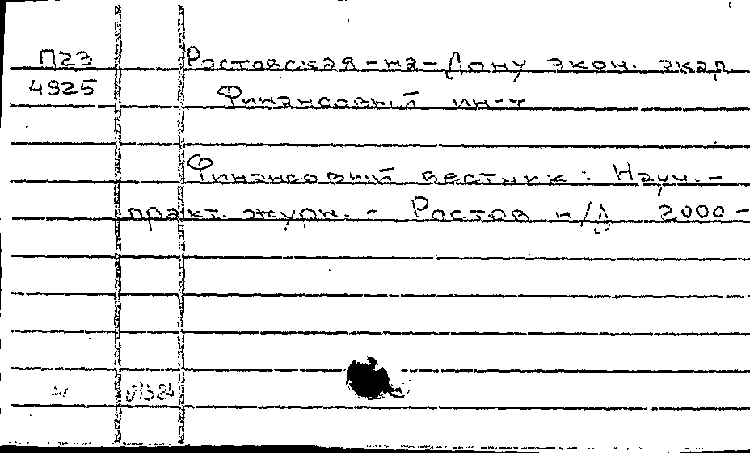 П23 Ростовская-на-Дону экон. акад.
4925 Финансовый ин-т
Финансовый вестник: Науч.-
практ. журн. - Ростов н/Д 2000-